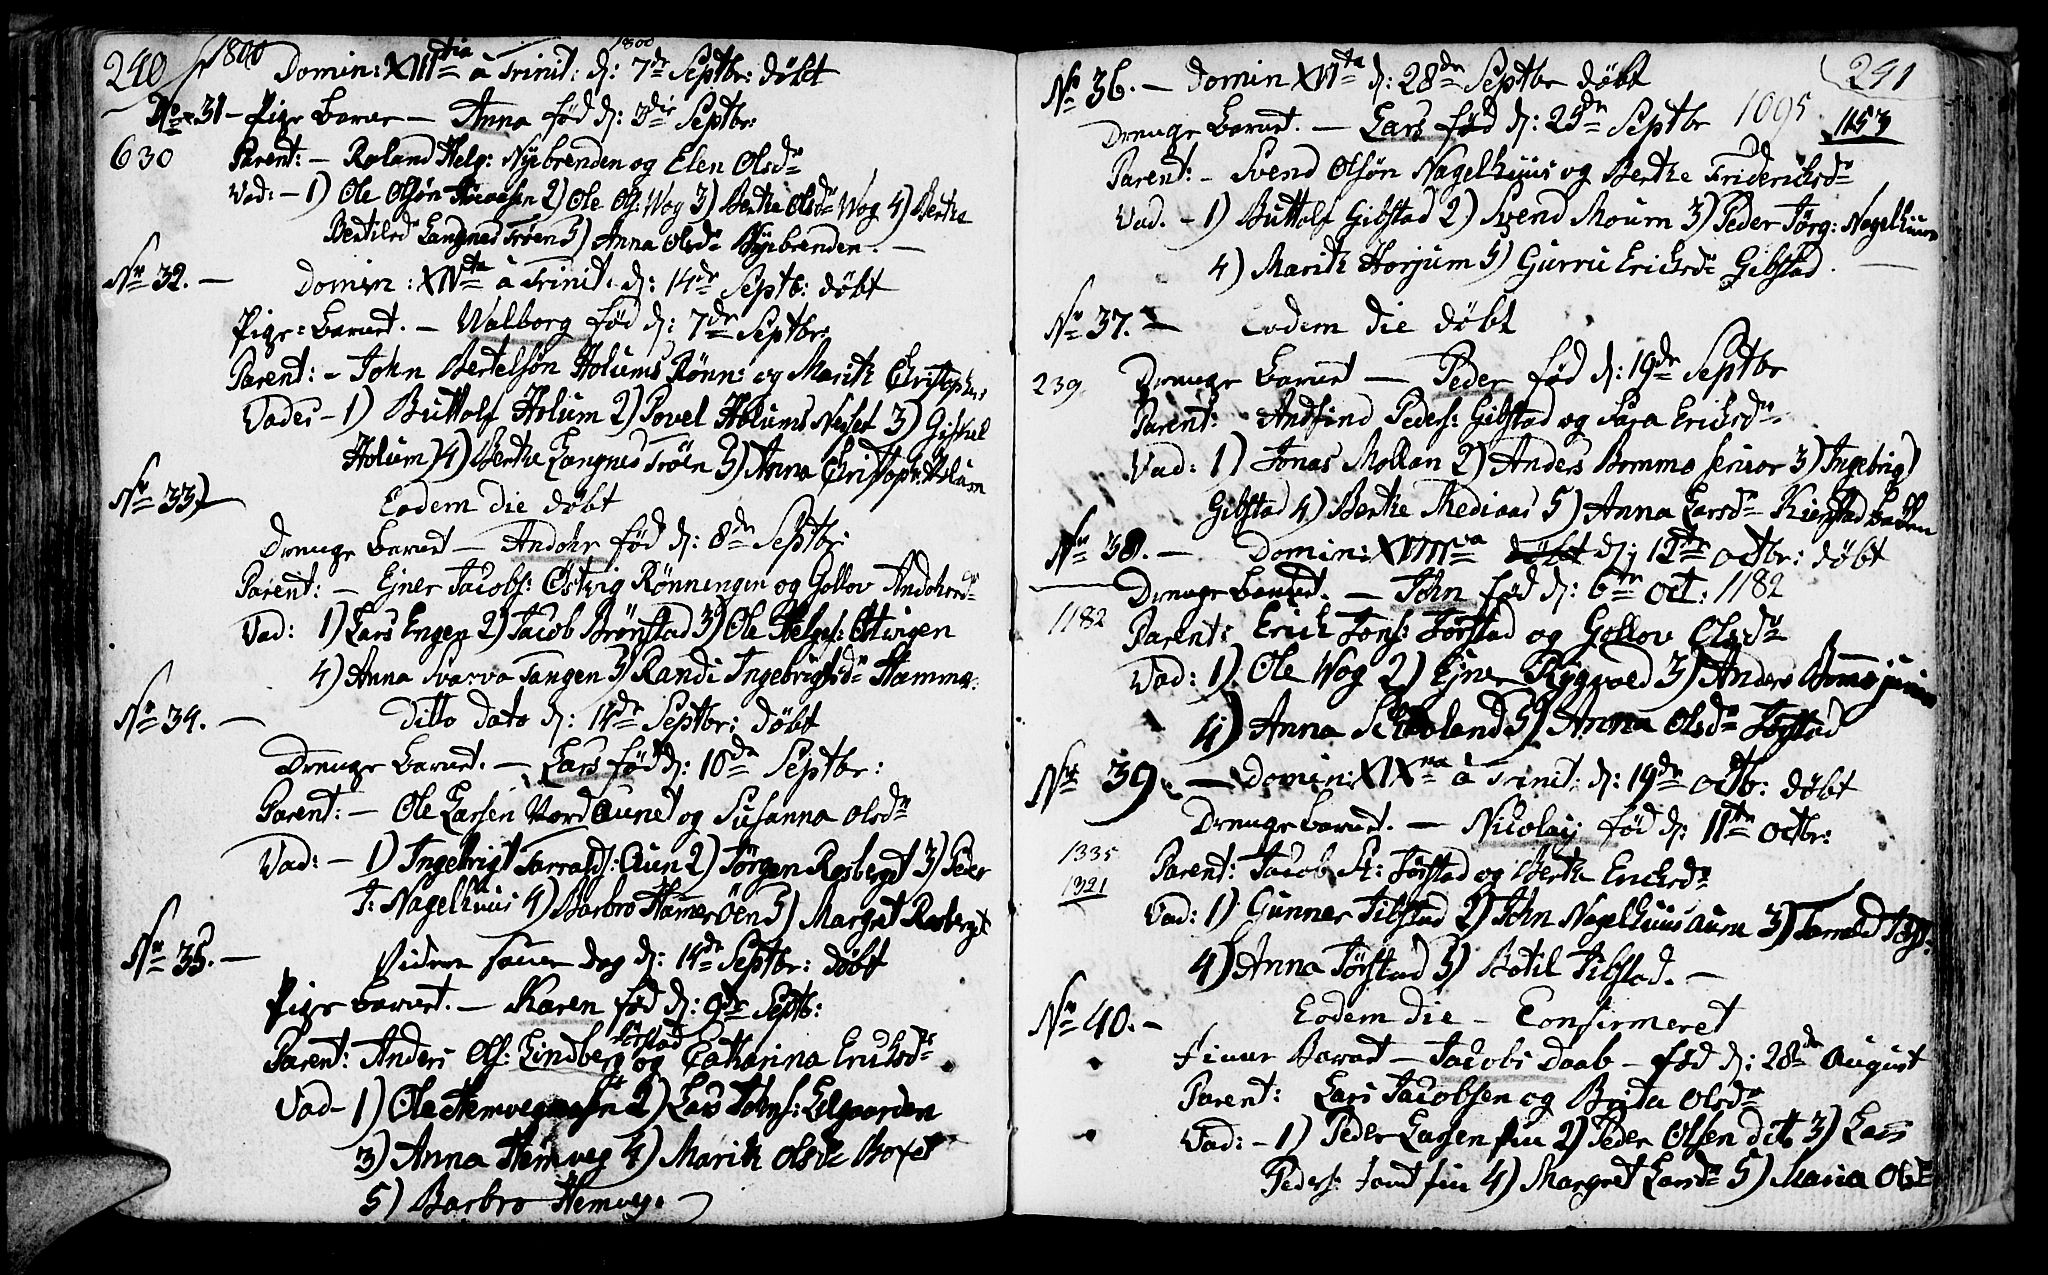 240 1800 Domin: XIII tia à Trinit: d: 7de Septbr: døbt
1800
No 31 – Pige Barnet – Anna fød d: 3die Septbr:
630
Parent: – Roland Helg: Nyebrenden og Elen Olsdr
Vad: – 1) Ole Olsøn 2) Ole Ols: Wog 3) Berthe Olsdr Wog 4) Berthe
Bertilsdr Langnes Trøen 5) Anna Olsdr Nyebrenden. –
No 32. – Domin: XIV ta à Trinit: d: 14de Septb: døbt
Pige-Barnet. – Walborg fød d: 7de Septbr:
Parent: – John Bertelsøn Holums Rønn: og Marith Christophs:
Vad: – 1) Buttolf Holum 2) Povel Holums Neset 3) Giskel
Holum 4) Berthe Langnes Trøen 5) Anna Christoph: Holum
No 33) – Eodem die døbt
Drenge Barnet – Andohr fød d: 8de Septbr:
Parent: – Ejner Jacobs: Østvig Rønningen og Gollov Andohrsdr
Vad: 1) Lars Engen 2) Jacob Brønstad 3) Ole Helges: Østvigen
4) Anna Svarva Tangen 5) Randi Ingebrigtsdr Hamma:
No 34. – Ditto dato d: 14de Septbr: døbt
Drenge Barnet. – Lars fød d: 10de Septbr:
Parent: – Ole Larsen Nord Aunet og Susanna Olsdr
Vad: – 1) Ingebrigt Tarralds: Aun 2) Jørgen Rasberget 3) Peder
J: Nagelhuus 4) Barbro Hamer Øen 5) Margret Rasberget
No 35. – samme Dag d: 14de Septbr: døbt
Pige Barnet. – Karen fød d: 9de Septb:
Tørstad
Parent: Anders Ols: Lindberg og Catharina Eriksdr
Vad – 1) Ole 2) Lars Johns: Elgaarden
3) Anna Hemveg 4) Marith Olsdr
5) Barbro Hemveg.
241
No 36. – Domin XVI ta d: 28de Septbr døbt
1095 1153
Drenge Barnet. – Lars fød d: 25de Septbr
Parent: – Svend Olsøn Nagelhuus og Berthe Fridericksdr
Vad. – 1) Buttolf Gibstad 2) Svend Moum 3) Peder Jørg: Nagelhuus
4) Marith Horjum 5) Gurru Ericksdr Gibstad. –
No 37. – Eodem die døbt
239.
Drenge Barnet – Peder fød d: 19de Septbr
Parent: Andfind Peders: Gibstad og Sara Ericksdr
Vad: 1) Jonas Mollan 2) Anders Bomma senior 3) Ingebrigt
Gibstad 4) Berthe Mediaas 5) Anna Larsdr Kierstad
No 38. – Domin: XVIII va døbt d: 12te Octbr: døbt
Drenge Barnet. – John fød d: 6te Oct: 1182
1182
Parent: Erick Jons: Tørstad og Gollov Olsdr
Vad: 1) Ole Wog 2) Ejner Rygvold 3) Anders Bomma junior
4) Anna 5) Anna Olsdr Tørstad
No 39. – Domin: XIX na à Trinit: d: 19de Octb: døbt
Drenge Barnet. – Nicolaij fød d: 11te Octbr:
1335
1321
Parent: Jacob St: Tørstad og Berthe Ericksdr
Vad: 1) Gunner Tibstad 2) John Nagelhuus Aune 3) Tarrald Tørst:
4) Anna Tørstad 5) Botil Tibstad. –
No 40. – Eodem die – Confirmeret
Finne Barnet – Jacobs Daab – fød d: 28de August
Parent: Lars Jacobsen og Brita Olsdr
Vad: – 1) Peder Larsen fin 2) Peder Olsen dito 3) Lars
Peders: fin 4) Margret Larsdr 5) Maria Olsdr